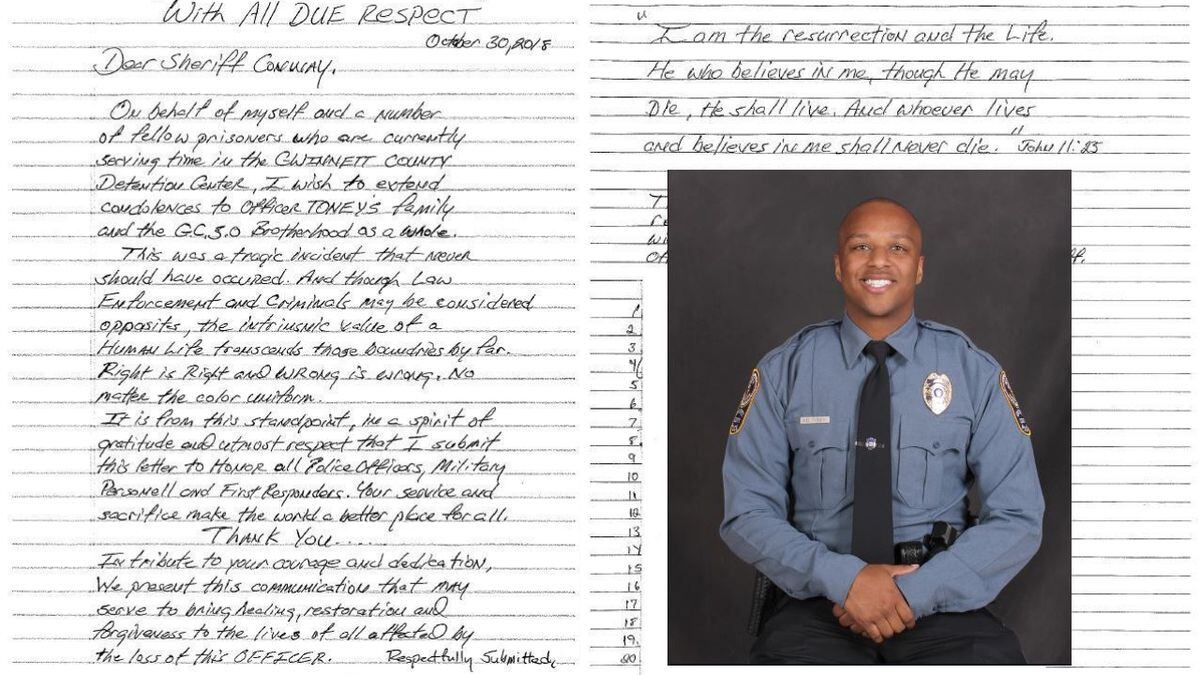 With All DUE Respect
October 30, 2018
Dear Sheriff Conway,
On behalf of myself and a number
of fellow prisoners who are currently
serving time in the GWINNETT COUNTY
Detention Center, I wish to extend
condolences to Officer TONEY'S family
and the G.C.S.O Brotherhood as a whole.
This was a tragic incident that never
should have occured. And though Law
Enforcement and Criminals may be considered
opposites, the intrinsnic value of a
Human Life transcends those boundries by far.
Right is Right and WRONG is wrong. No
matter the color uniform.
It is from this standpoint, in a spirit of
gratitude and utmost respect that I submit
this letter to HONOR all Police Officers, Military
Personell and First Responders. Your service and
sacrifice make the world a better place for all.
THANK YOU.....
In tribute to your courage and dedication,
We present this communication that may
serve to bring healing, restoration and
forgiveness to the lives of all affected by
the loss of this OFFICER. Respectfully Submitted,
"I am the resurrection and the Life.
He who believes in me, though He may
Die, He shall live. And whoever lives
and believes in me shall never die." John 11:25
1
2
3
4
5
6
7
8
9
10
11
12
13
14
15
16
17
18
19
20